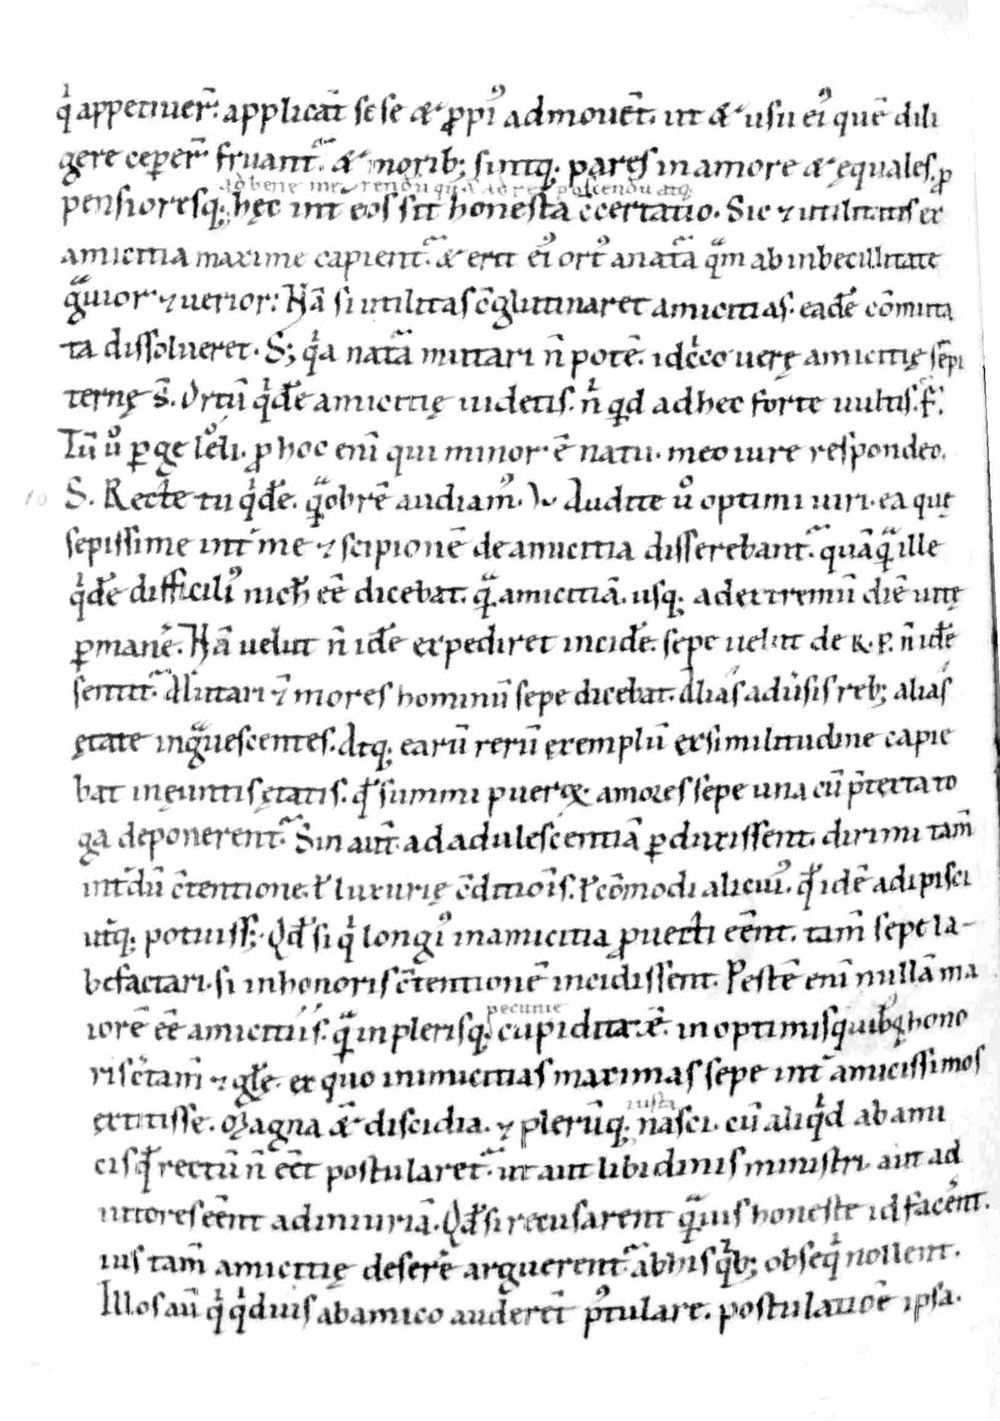 q̍ appetiuer̄. applicāt sese & ꝓpi᷒ admouēt. ut & usu ei᷒ quē dili
gere ceper̄ fruant᷑. & morib; sintq; pares in amore & ęquales. ꝓ
ad bene merendū quā ad reposcendū atq;
pensioresq; hęc int̄ eos sit honesta c̄certatio. Sic ⁊ utilitatis ex
amicitia maxime capient᷑. & erit ei᷒ ort᷒ a natᷓa qᷓm ab inbecillitate
gᷓuior ⁊ uerior: Nā si utilitas c̄glutinaret amicitias. eadē cōmuta
ta dissolueret. S; q̍a natᷓa muttari n̄ potē. idc̍co uerę amicitię sēpi
ternę s̄. Ortū q̍dē amicitię uidetis. n̍ quid ad hec forte uultis. F.
Tū u᷒ perge leli. ꝓ hoc enī qui minor ē natu. meo iure respondeo.
10 S. Recte tu q̍dē. qᷓobrē audiam᷒. L. Audite u᷒ optimi uiri. ea quę
sepissime int̄ me ⁊ scipionē de amicitia disserebant᷑. quāqᷓ ille
q̍dē difficili᷒ nich̄ eē dicebat. qᷓ amicitiā. usq; ad extremū diē uitę
ꝑmanē. Nā uelut n̄ idē expediret incidē. sepe uelut de R. P. n̄ idē
sentit᷑. Mutari ⁊ mores hominū sepe dicebat. alias adūsis reb; alias
ętate ingᷓuescentes. Atq; earū rerū exemplū ex similitudine capie
bat ineuntis ętatis. qđ summi pueroꝝ amores sepe una cū p̄texta to
ga deponerent᷑. Sin aut̄ ad adulescentiā ꝑduxissent. dirimi tam̄
int̄dū c̄tentione. ł luxurię c̄ditiōis. ł cōmodi alicui᷒. qđ idē adipisci
ut̄q; potuiss;. Qđ si q̍ longi᷒ in amicitia ꝓuecti eēnt. tam̄ sepe la-
befactari. si in honoris c̄tentionē incidissent. Pestē enī nullā ma
pecunie
iorē eē amicitiis. qᷓ in plerisq; cupiditatē. in optimis quibq̨ hono
ris c̄tam̄ ⁊ glę. ex quo inimicitias maximas sepe int̄ amicissimos
iusta
extitisse. Magna & discidia. ⁊ plerūq; nasci. cū aliq̍d ab ami
cis qđ rectū n̄ eēt postularet᷑. ut aut libidinis ministri. aut ad
iutores eēnt ad iniuriā. Qđ si recusarent qᷓuis honeste id facēnt.
ius tam̄ amicitię deserē arguerent᷑ ab his q̍b; obseq̍ nollent.
Illos aū q̍ q̍duis ab amico auderēt p᷒tulare. postulatiōē ipsa.